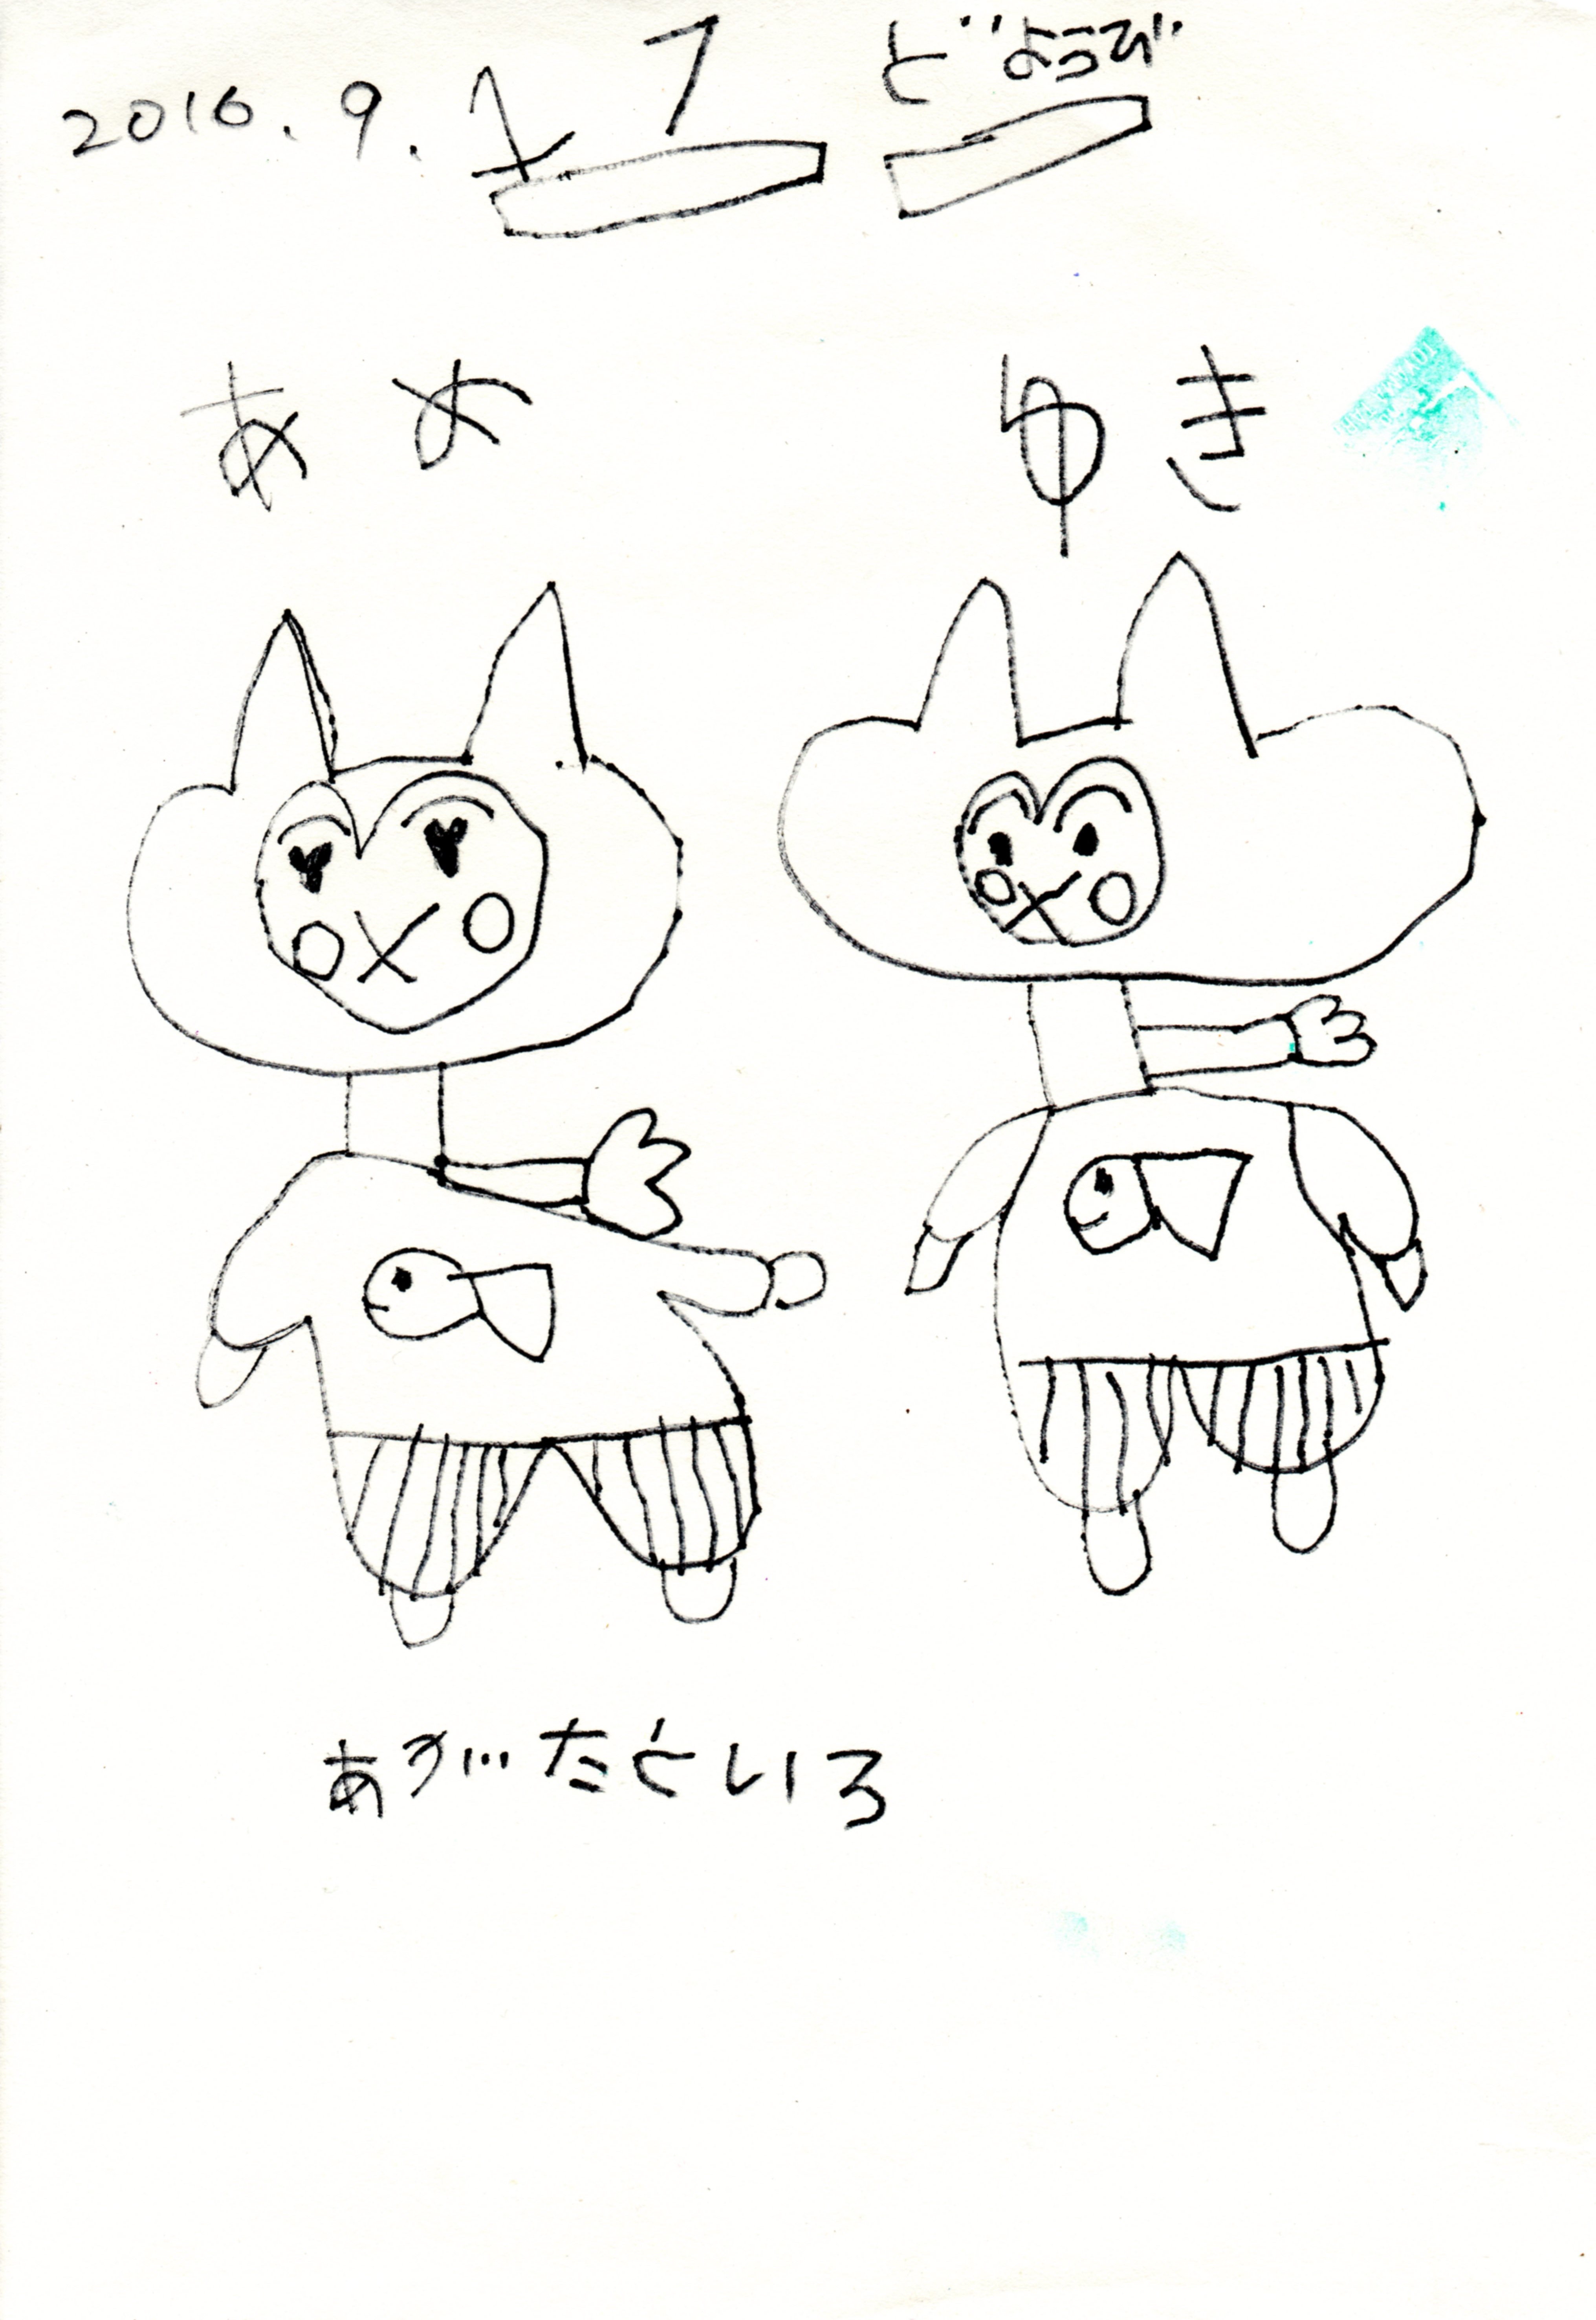 2016. 9. 17 どようび
あめ ゆき
あがたといろ